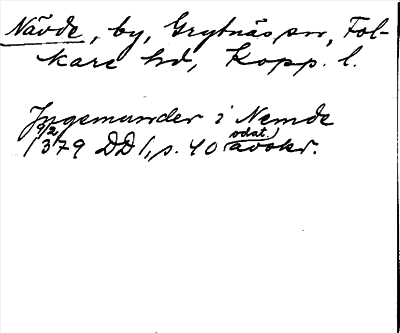 Nävde, by, Grytnäs sn, Fol-
kare hd, Kopp. l.
Jngemunder i Nemde
9/2 odat.
1379 DD 1, s. 40 avskr.